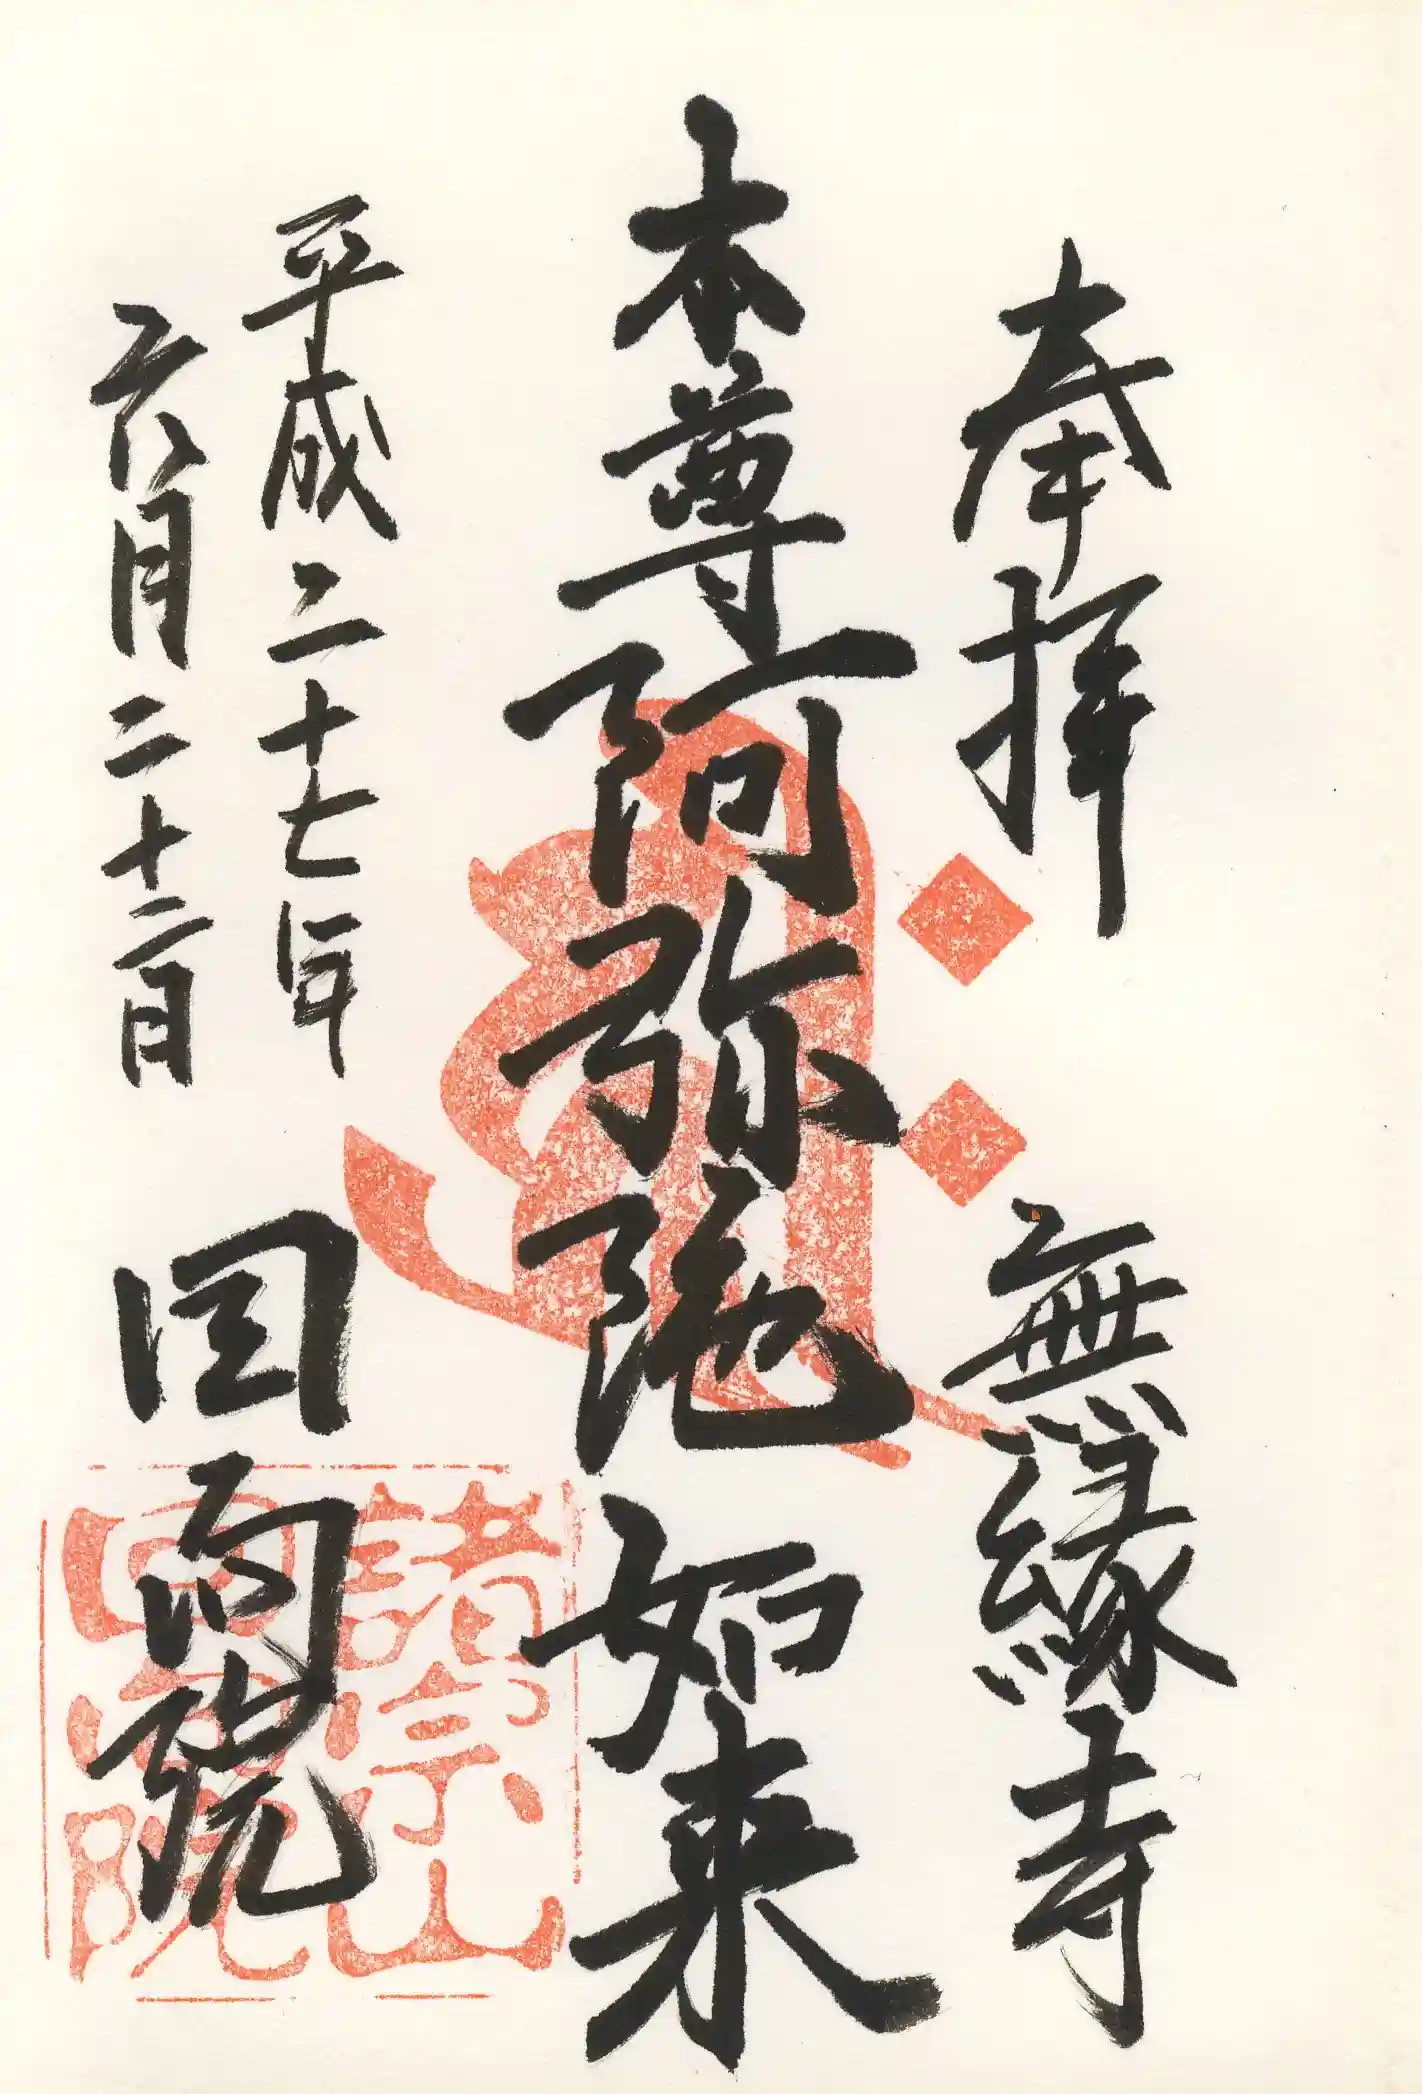 奉拝 無縁寺
本尊阿弥陀如来
平成二十七年
六月二十二日
回向院
諸宗山
回向院